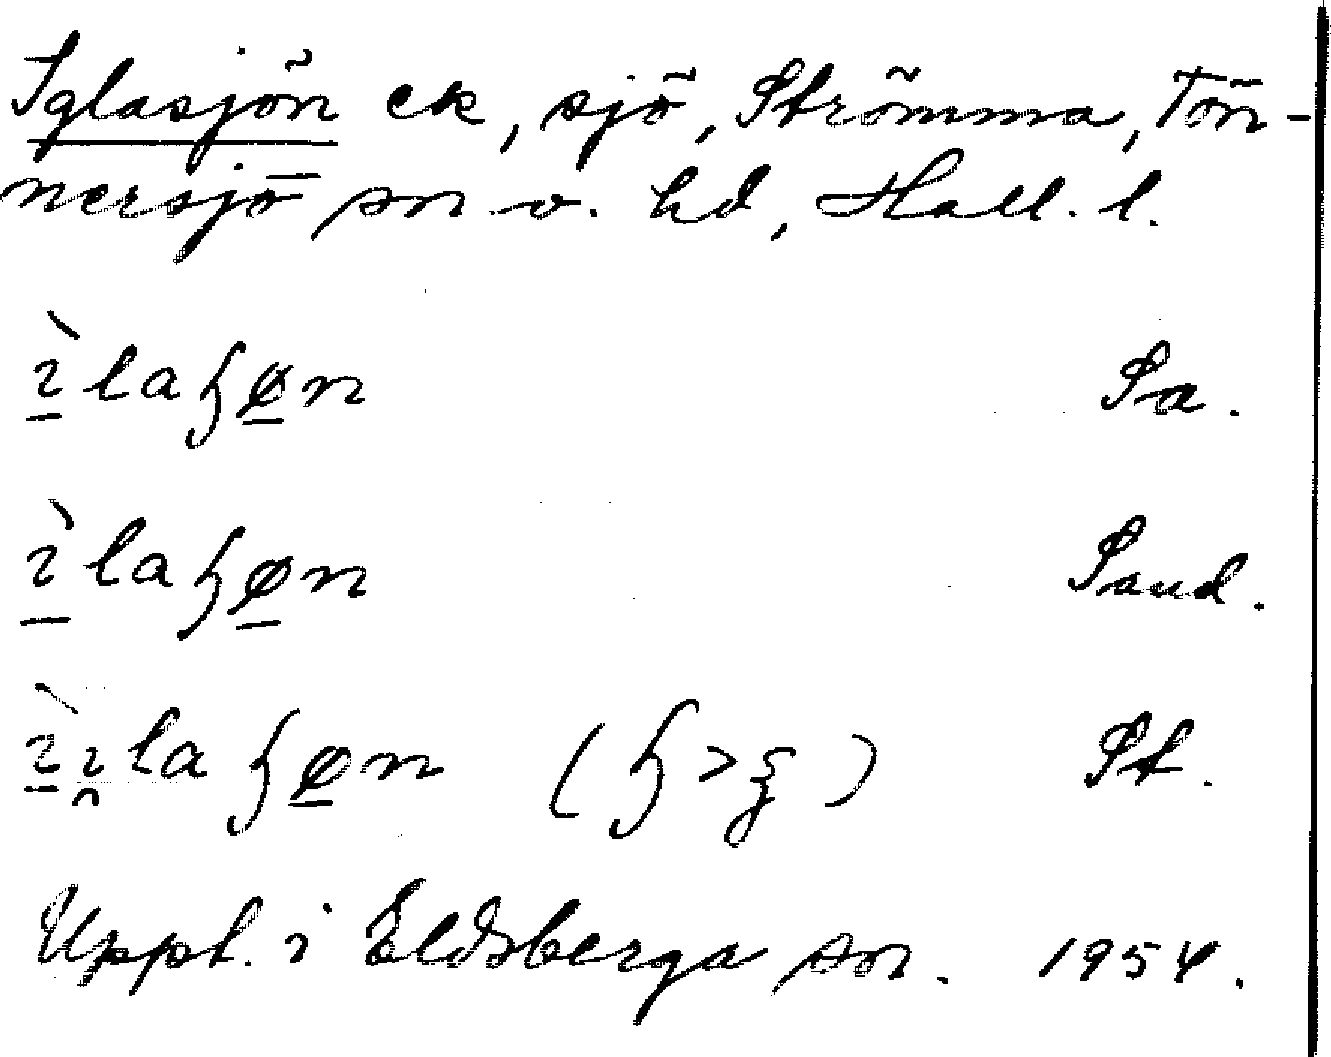 Iglasjön ek, sjö, Strömma, Tön-
nersjö sn v. hd, Hall. l.
ı̀laɧøn Sa.
ı̀laɧøn Sand.
ı̀ı̯laɧøn (ɧ > ξ) St.
Uppt. i Eldsberga sn. 1954.